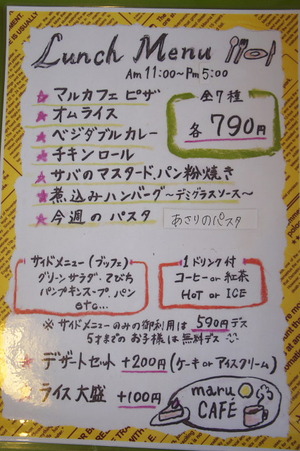 Lunch Menu
Am 11:00~Pm 5:00
★ マルカフェ ピザ
★ オムライス
★ ベジタブルカレー
★ チキンロール
★ サバのマスタード、パン粉焼き
★ 煮込みハンバーグ~デミグラスソース~
★ 今週の パスタ あさりのパスタ
全7種
各 790円
サイドメニュー(ブッフェ)
グリーンサラダ、てびち
パンプキンスープ、パン
etc...
1ドリンク付
コーヒー or 紅茶
HOT or ICE
※ サイドメニューのみの御利用は 590円 デス
5才までの お子様は 無料デス
★ デザートセット +200円 (ケーキ or アイスクリーム)
★ ライス 大盛 +100円
maru
CAFÉ